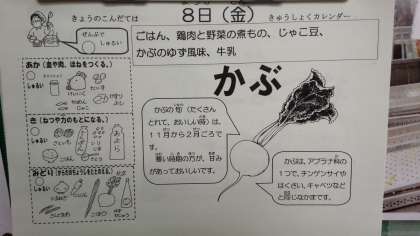 きょうのこんだては
8日(金)
きゅうしょくカレンダー
ぜんぶで
しゅるい
ごはん、鶏肉と野菜の煮もの、じゃこ豆、
かぶのゆず風味、牛乳
かぶ
あか(血や肉、ほねをつくる。)
しゅるい
き(ねつや力のもとになる。)
しゅるい
さとう
ごはん
みどり(からだのちょうしをととのえる。)
しゅるい
ごぼう
かぶの旬(たくさん
とれて、おいしい時)は、
11月から2月ごろで
す。
寒い時期の方が、甘み
があっておいしいです。
かぶは、アブラナ科の
1つで、チンゲンサイや
はくさい、キャベツなど
と同じなかまです。